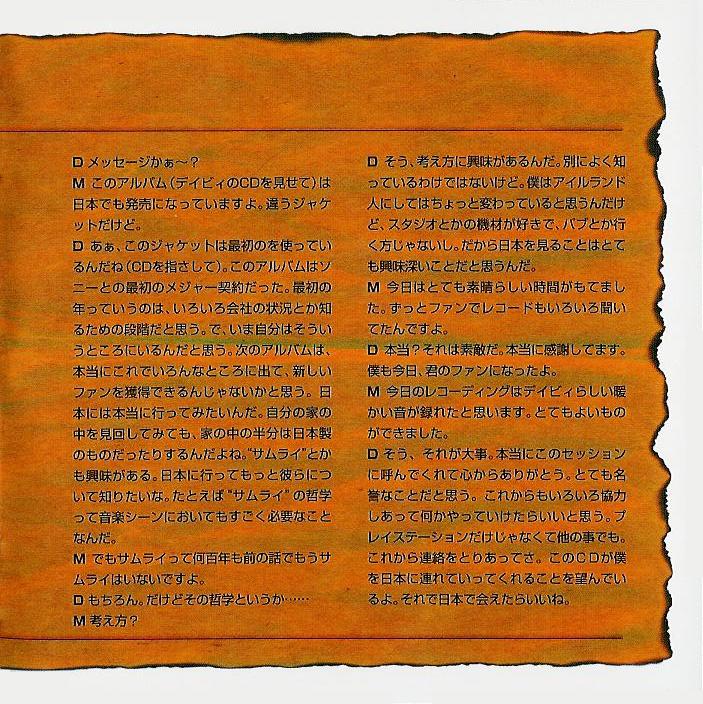 D メッセージかぁ〜？
M このアルバム（デイビィのCDを見せて）は
日本でも発売になっていますよ。違うジャケ
ットだけど。
D あぁ、このジャケットは最初のを使ってい
るんだね（CDを指さして）。このアルバムはソ
ニーとの最初のメジャー契約だった。最初の
年っていうのは、いろいろ会社の状況とか知
るための段階だと思う。で、いま自分はそうい
うところにいるんだと思う。次のアルバムは、
本当にこれでいろんなところに出て、新しい
ファンを獲得できるんじゃないかと思う。日
本には本当に行ってみたいんだ。自分の家の
中を見回してみても、家の中の半分は日本製
のものだったりするんだよね。“サムライ”とか
も興味がある。日本に行ってもっと彼らにつ
いて知りたいな。たとえば“サムライ”の哲学
って音楽シーンにおいてもすごく必要なこと
なんだ。
M でもサムライって何百年も前の話でもうサ
ムライはいないですよ。
D もちろん。だけどその哲学というか……
M 考え方？
D そう、考え方に興味があるんだ。別によく知
っているわけではないけど。僕はアイルランド
人にしてはちょっと変わっていると思うんだけ
ど、スタジオとかの機材が好きで、パブとか行
く方じゃないし。だから日本を見ることはとて
も興味深いことだと思うんだ。
M 今日はとても素晴らしい時間がもてまし
た。ずっとファンでレコードもいろいろ聞い
てたんですよ。
D 本当？それは素敵だ。本当に感謝してます。
僕も今日、君のファンになったよ。
M 今日のレコーディングはデイビィらしい暖
かい音が録れたと思います。とてもよいもの
ができました。
D そう、それが大事。本当にこのセッション
に呼んでくれて心からありがとう。とても名
誉なことだと思う。これからもいろいろ協力
しあって何かやっていけたらいいと思う。プ
レイステーションだけじゃなくて他の事でも。
これから連絡をとりあってさ。このCDが僕
を日本に連れていってくれることを望んでい
るよ。それで日本で会えたらいいね。